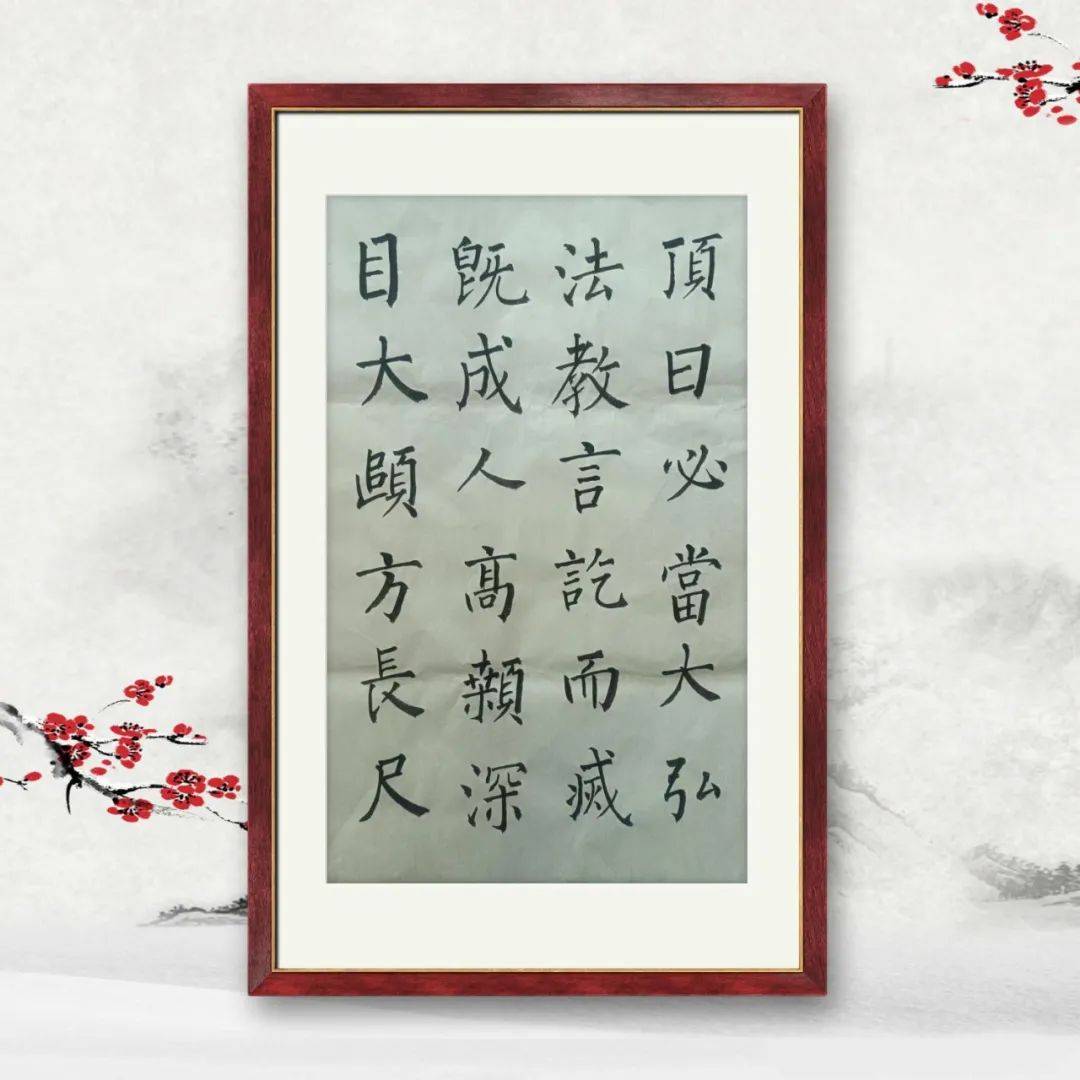 頂曰必當大弘
法教言訖而滅
既成人高顙深
目大頤方長尺